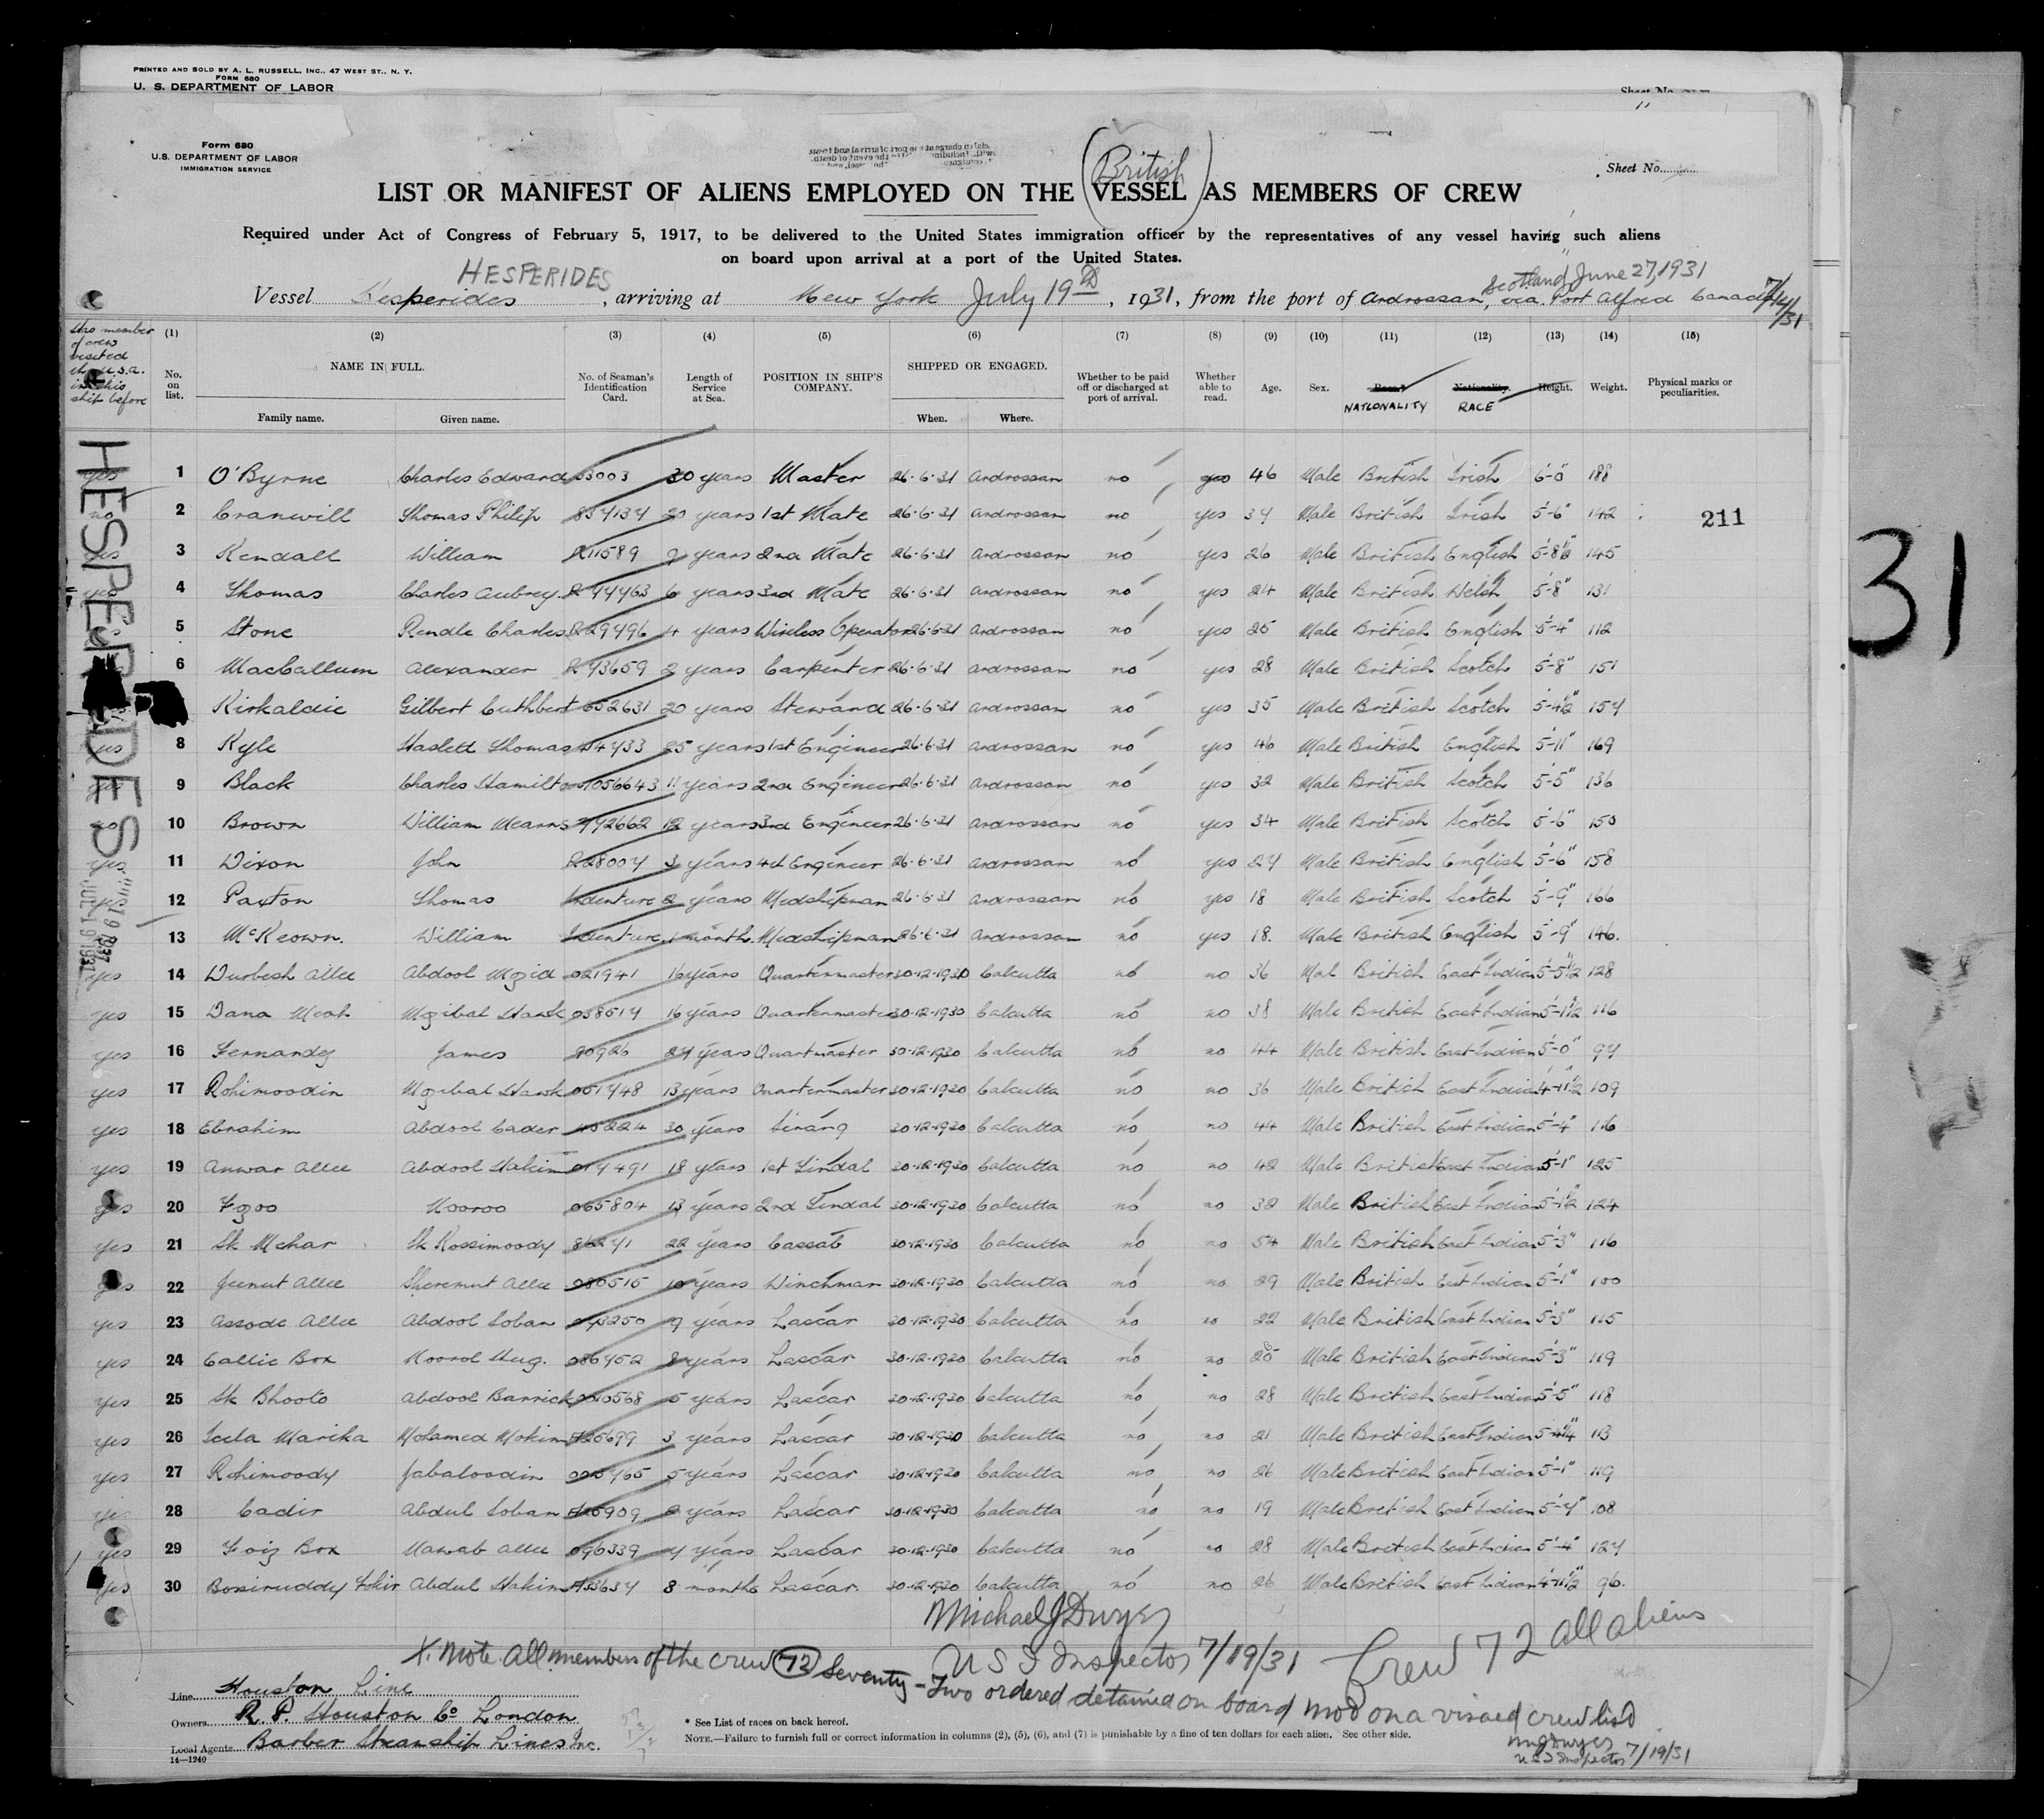 PRINTED AND SOLD BY A. L. RUSSELL, INC., 47 WEST ST., N. Y.
FORM 680
U. S. DEPARTMENT OF LABOR
Sheet No.
Form 680
U.S. DEPARTMENT OF LABOR
IMMIGRATION SERVICE
Sheet No.
(British)
LIST OR MANIFEST OF ALIENS EMPLOYED ON THE VESSEL AS MEMBERS OF CREW
Required under Act of Congress of February 5, 1917, to be delivered to the United States immigration officer by the representatives of any vessel having such aliens
on board upon arrival at a port of the United States.
HESPERIDES
Scotland, June 27, 1931
Vessel Hesperides, arriving at New York July 19th, 1931, from the port of Ardrossan, via. Port Alfred Canada 7/14/31
(1) (2) (3) (4) (5) (6) (7) (8) (9) (10) (11) (12) (13) (14) (15)
Has member of crew visited the U.S.A. in this ship before
No. on list.
NAME IN FULL.
Family name. Given name.
No. of Seaman's Identification Card.
Length of Service at Sea.
POSITION IN SHIP'S COMPANY.
SHIPPED OR ENGAGED.
When. Where.
Whether to be paid off or discharged at port of arrival.
Whether able to read.
Age. Sex.
Race* NATIONALITY
Nationality. RACE
Height. Weight.
Physical marks or peculiarities.
HESPERIDES
JUL 19 1931
1 O'Byrne Charles Edward 30 years Master 26.6.31 Ardrossan no yes 46 Male British Irish 6-0" 188
no 2 Cranwill Thomas Philip 20 years 1st Mate 26.6.31 Ardrossan no yes 34 Male British Irish 5'-6" 142
211
3 Kendall William R11589 9 years 2nd Mate 26.6.31 Ardrossan no yes 26 Male British English 5'-8½" 145
4 Thomas Charles Aubrey 6 years 3rd Mate 26.6.31 Ardrossan no yes 24 Male British Welsh 5'-8" 131
5 Stone Rendle Charles 4 years Wireless Operator 26.6.31 Ardrossan no yes 25 Male British English 5'-4" 112
6 MacCallum Alexander 2 years Carpenter 26.6.31 Ardrossan no yes 28 Male British Scotch 5'-8" 151
Kirkaldie Gilbert Cuthbert 652631 20 years Steward 26.6.31 Ardrossan no yes 35 Male British Scotch 5'-4½" 154
yes 8 Kyle Haslett Thomas 25 years 1st Engineer 26.6.31 Ardrossan no yes 46 Male British English 5'-11" 169
9 Black Charles Hamilton 1056643 11 years 2nd Engineer 26.6.31 Ardrossan no yes 32 Male British Scotch 5'-5" 136
10 Brown William Mearns 942662 12 years 3rd Engineer 26.6.31 Ardrossan no yes 34 Male British Scotch 5'-6" 150
yes 11 Dixon John R28004 3 years 4th Engineer 26.6.31 Ardrossan no yes 24 Male British English 5'-6" 158
12 Paxton Thomas Indenture 2 years Midshipman 26.6.31 Ardrossan no yes 18 Male British Scotch 5'-9" 166
13 McKeown. William Indenture 1 month. Midshipman 26.6.31 Ardrossan no yes 18. Male British English 5'-9" 146.
yes 14 Durbesh Allee Abdool Mozid 021941 16 years Quartermaster 30.12.1930 Calcutta no no 36 Mal British East Indian 5'-5½" 128
yes 15 Dana Meah 038514 16 years Quartermaster 30.12.1930 Calcutta no no 38 Male British East Indian 5'-1½" 116
yes 16 Fernandez James 90926 24 years Quartmaster 30.12.1930 Calcutta no no 44 Male British East Indian 5'-0" 94
yes 17 Rohimoodin 13 years Quartermaster 30.12.1930 Calcutta no no 36 Male British East Indian 4'-11½" 109
yes 18 Ebrahim Abdool Cader 45224 30 years Serang 30.12.1930 Calcutta no no 44 Male British East Indian 5'-4" 116
yes 19 Anwar Allee Abdool Hakim 18 years 1st Tindal 30.12.1930 Calcutta no no 42 Male British East Indian 5'-1" 125
yes 20 Fozoo Nooroo 065804 13 years 2nd Tindal 30.12.1930 Calcutta no no 32 Male British East Indian 5'-1½" 124
yes 21 Sk Mehar Sk Rossimoody 86241 22 years Cassab 30.12.1930 Calcutta no no 54 Male British East Indian 5'-3" 116
yes 22 Jeenut Allee Sheremut Allee 080515 10 years Winchman 30.12.1930 Calcutta no no 29 Male British East Indian 5'-1" 100
yes 23 Assode Allee Abdool Soban 9 years Lascar 30.12.1930 Calcutta no no 22 Male British East Indian 5'-3" 115
yes 24 Callie Box Noorol Hug. 086952 8 years Lascar 30.12.1930 Calcutta no no 25 Male British East Indian 5'-3" 119
yes 25 Sk Bhooto Abdool Barrick 5 years Lascar 30.12.1930 Calcutta no no 28 Male British East Indian 5'-5" 118
yes 26 Seela Marika Mohamed Mokim 3 years Lascar 30.12.1930 Calcutta no no 21 Male British East Indian 5'-4¼" 113
yes 27 Rohimoody Jabaloodin 5 years Lascar 30.12.1930 Calcutta no no 26 Male British East Indian 5'-1" 119
yes 28 Cadir Abdul Soban years Lascar 30.12.1930 Calcutta no no 19 Male British East Indian 5'-4" 108
yes 29 Foiz Box Nawab Allee 096339 4 years Lascar 30.12.1930 Calcutta no no 28 Male British East Indian 5'-4" 124
yes 30 Bosiruddy Fokir Abdul Hakim 8 months Lascar. 30.12.1930 Calcutta no no 26 Male British East Indian 4'-11½" 96.
Michael J Dwyer
U S I Inspector 7/19/31
Crew 72 all aliens
X. Note. All members of the crew (72) Seventy-Two ordered detained on board. Not on a visaed crew list.
MJ Dwyer
U S I Inspector 7/19/31
Line Houston Line
Owners R. P. Houston Co London
Local Agents Barber Steamship Lines Inc.
14—1240
* See List of races on back hereof.
NOTE.—Failure to furnish full or correct information in columns (2), (5), (6), and (7) is punishable by a fine of ten dollars for each alien. See other side.
31